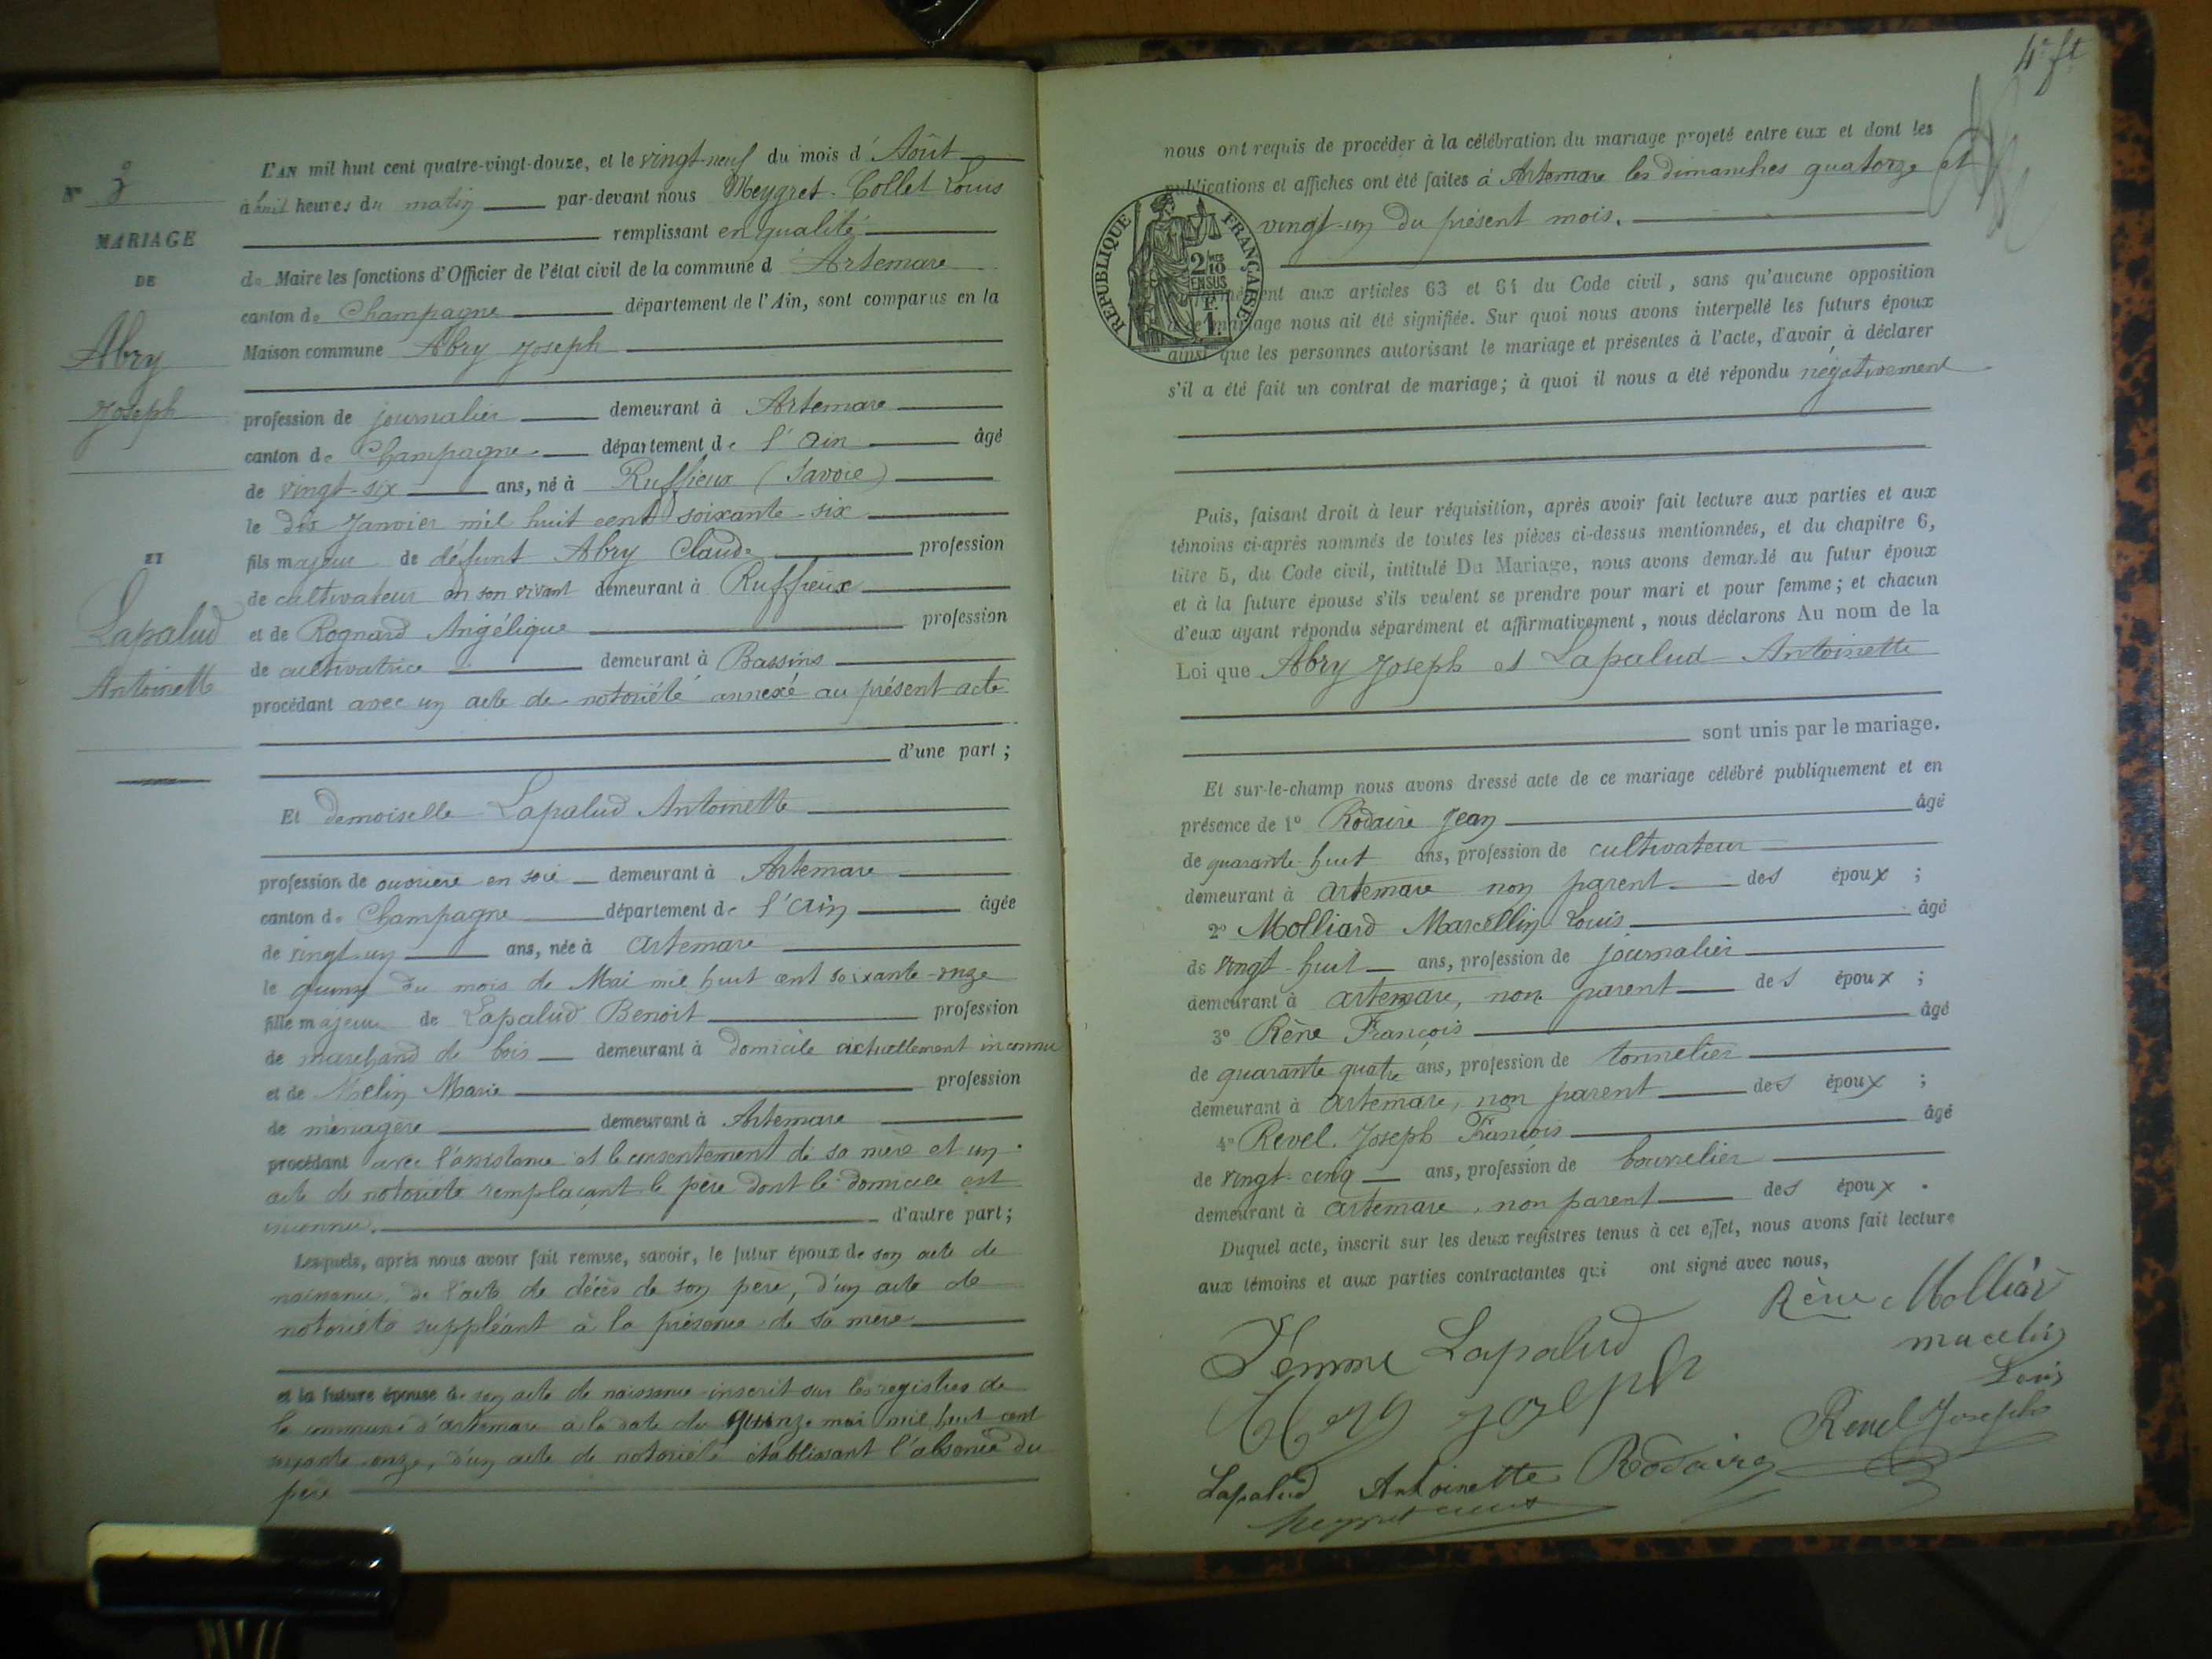 L'AN mil huit cent quatre-vingt-douze, et le vingt-neuf du mois d'Août
à huit heures du matin par-devant nous Meygret-Collet Louis
remplissant en qualité
de Maire les fonctions d'Officier de l'état civil de la commune d'Artemare
canton de Champagne département de l'Ain, sont comparus en la
Maison commune Abry Joseph
profession de journalier demeurant à Artemare
canton de Champagne département de l'Ain âgé
de vingt-six ans, né à Ruffieux (Savoie)
le dix Janvier mil huit cent soixante-six
fils majeur de défunt Abry Claude profession
de cultivateur en son vivant demeurant à Ruffieux
et de Rognard Angélique profession
de cultivatrice demeurant à Bassins
procédant avec un acte de notoriété annexé au présent acte
d'une part ;
Et demoiselle Lapalud Antoinette
profession de ouvrière en soie demeurant à Artemare
canton de Champagne département de l'Ain âgée
de vingt-un ans, née à Artemare
le quinze du mois de Mai mil huit cent soixante-onze
fille majeure de Lapalud Benoit profession
de marchand de bois demeurant à domicile actuellement inconnu
et de Melin Marie profession
de ménagère demeurant à Artemare
procédant avec l'assistance et le consentement de sa mère et un
acte de notoriété remplaçant le père dont le domicile est
inconnu. d'autre part ;
Lesquels, après nous avoir fait remise, savoir, le futur époux de son acte de
naissance, de l'acte de décès de son père, d'un acte de
notoriété suppléant à la présence de sa mère
et la future épouse de son acte de naissance inscrit sur les registres de
la commune d'Artemare à la date du quinze mai mil huit cent
soixante-onze, d'un acte de notoriété établissant l'absence du
père
MARIAGE
DE
Abry
Joseph
ET
Lapalud
Antoinette
4e ft
nous ont requis de procéder à la célébration du mariage projeté entre eux et dont les
publications et affiches ont été faites à Artemare les dimanches quatorze et
vingt-un du présent mois.
REPUBLIQUE FRANÇAISE
2/10 EN SUS
1 F.
aux articles 63 et 64 du Code civil, sans qu'aucune opposition
à ce mariage nous ait été signifiée. Sur quoi nous avons interpellé les futurs époux
ainsi que les personnes autorisant le mariage et présentes à l'acte, d'avoir à déclarer
s'il a été fait un contrat de mariage ; à quoi il nous a été répondu négativement
Puis, faisant droit à leur réquisition, après avoir fait lecture aux parties et aux
témoins ci-après nommés de toutes les pièces ci-dessus mentionnées, et du chapitre 6,
titre 5, du Code civil, intitulé Du Mariage, nous avons demandé au futur époux
et à la future épouse s'ils veulent se prendre pour mari et pour femme ; et chacun
d'eux ayant répondu séparément et affirmativement, nous déclarons Au nom de la
Loi que Abry Joseph et Lapalud Antoinette
sont unis par le mariage.
Et sur-le-champ nous avons dressé acte de ce mariage célébré publiquement et en
présence de 1° Rodaire Jean âgé
de quarante-huit ans, profession de cultivateur
demeurant à Artemare non parent des époux ;
2° Molliard Marcellin Louis âgé
de vingt-huit ans, profession de journalier
demeurant à Artemare, non parent des époux ;
3° Rène François âgé
de quarante quatre ans, profession de tonnelier
demeurant à Artemare, non parent des époux ;
4° Revel Joseph François âgé
de vingt-cinq ans, profession de bourrelier
demeurant à Artemare, non parent des époux.
Duquel acte, inscrit sur les deux registres tenus à cet effet, nous avons fait lecture
aux témoins et aux parties contractantes qui ont signé avec nous,
Rène Molliar
macelin
Louis
Femme Lapalud
Abry Joseph
Revel Joseph
Lapalud Antoinette Rodaire